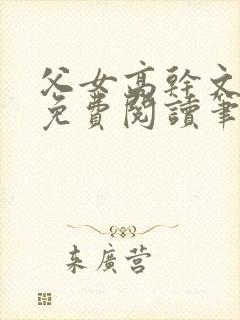 父女高幹文
免費閱讀筆
来廣营